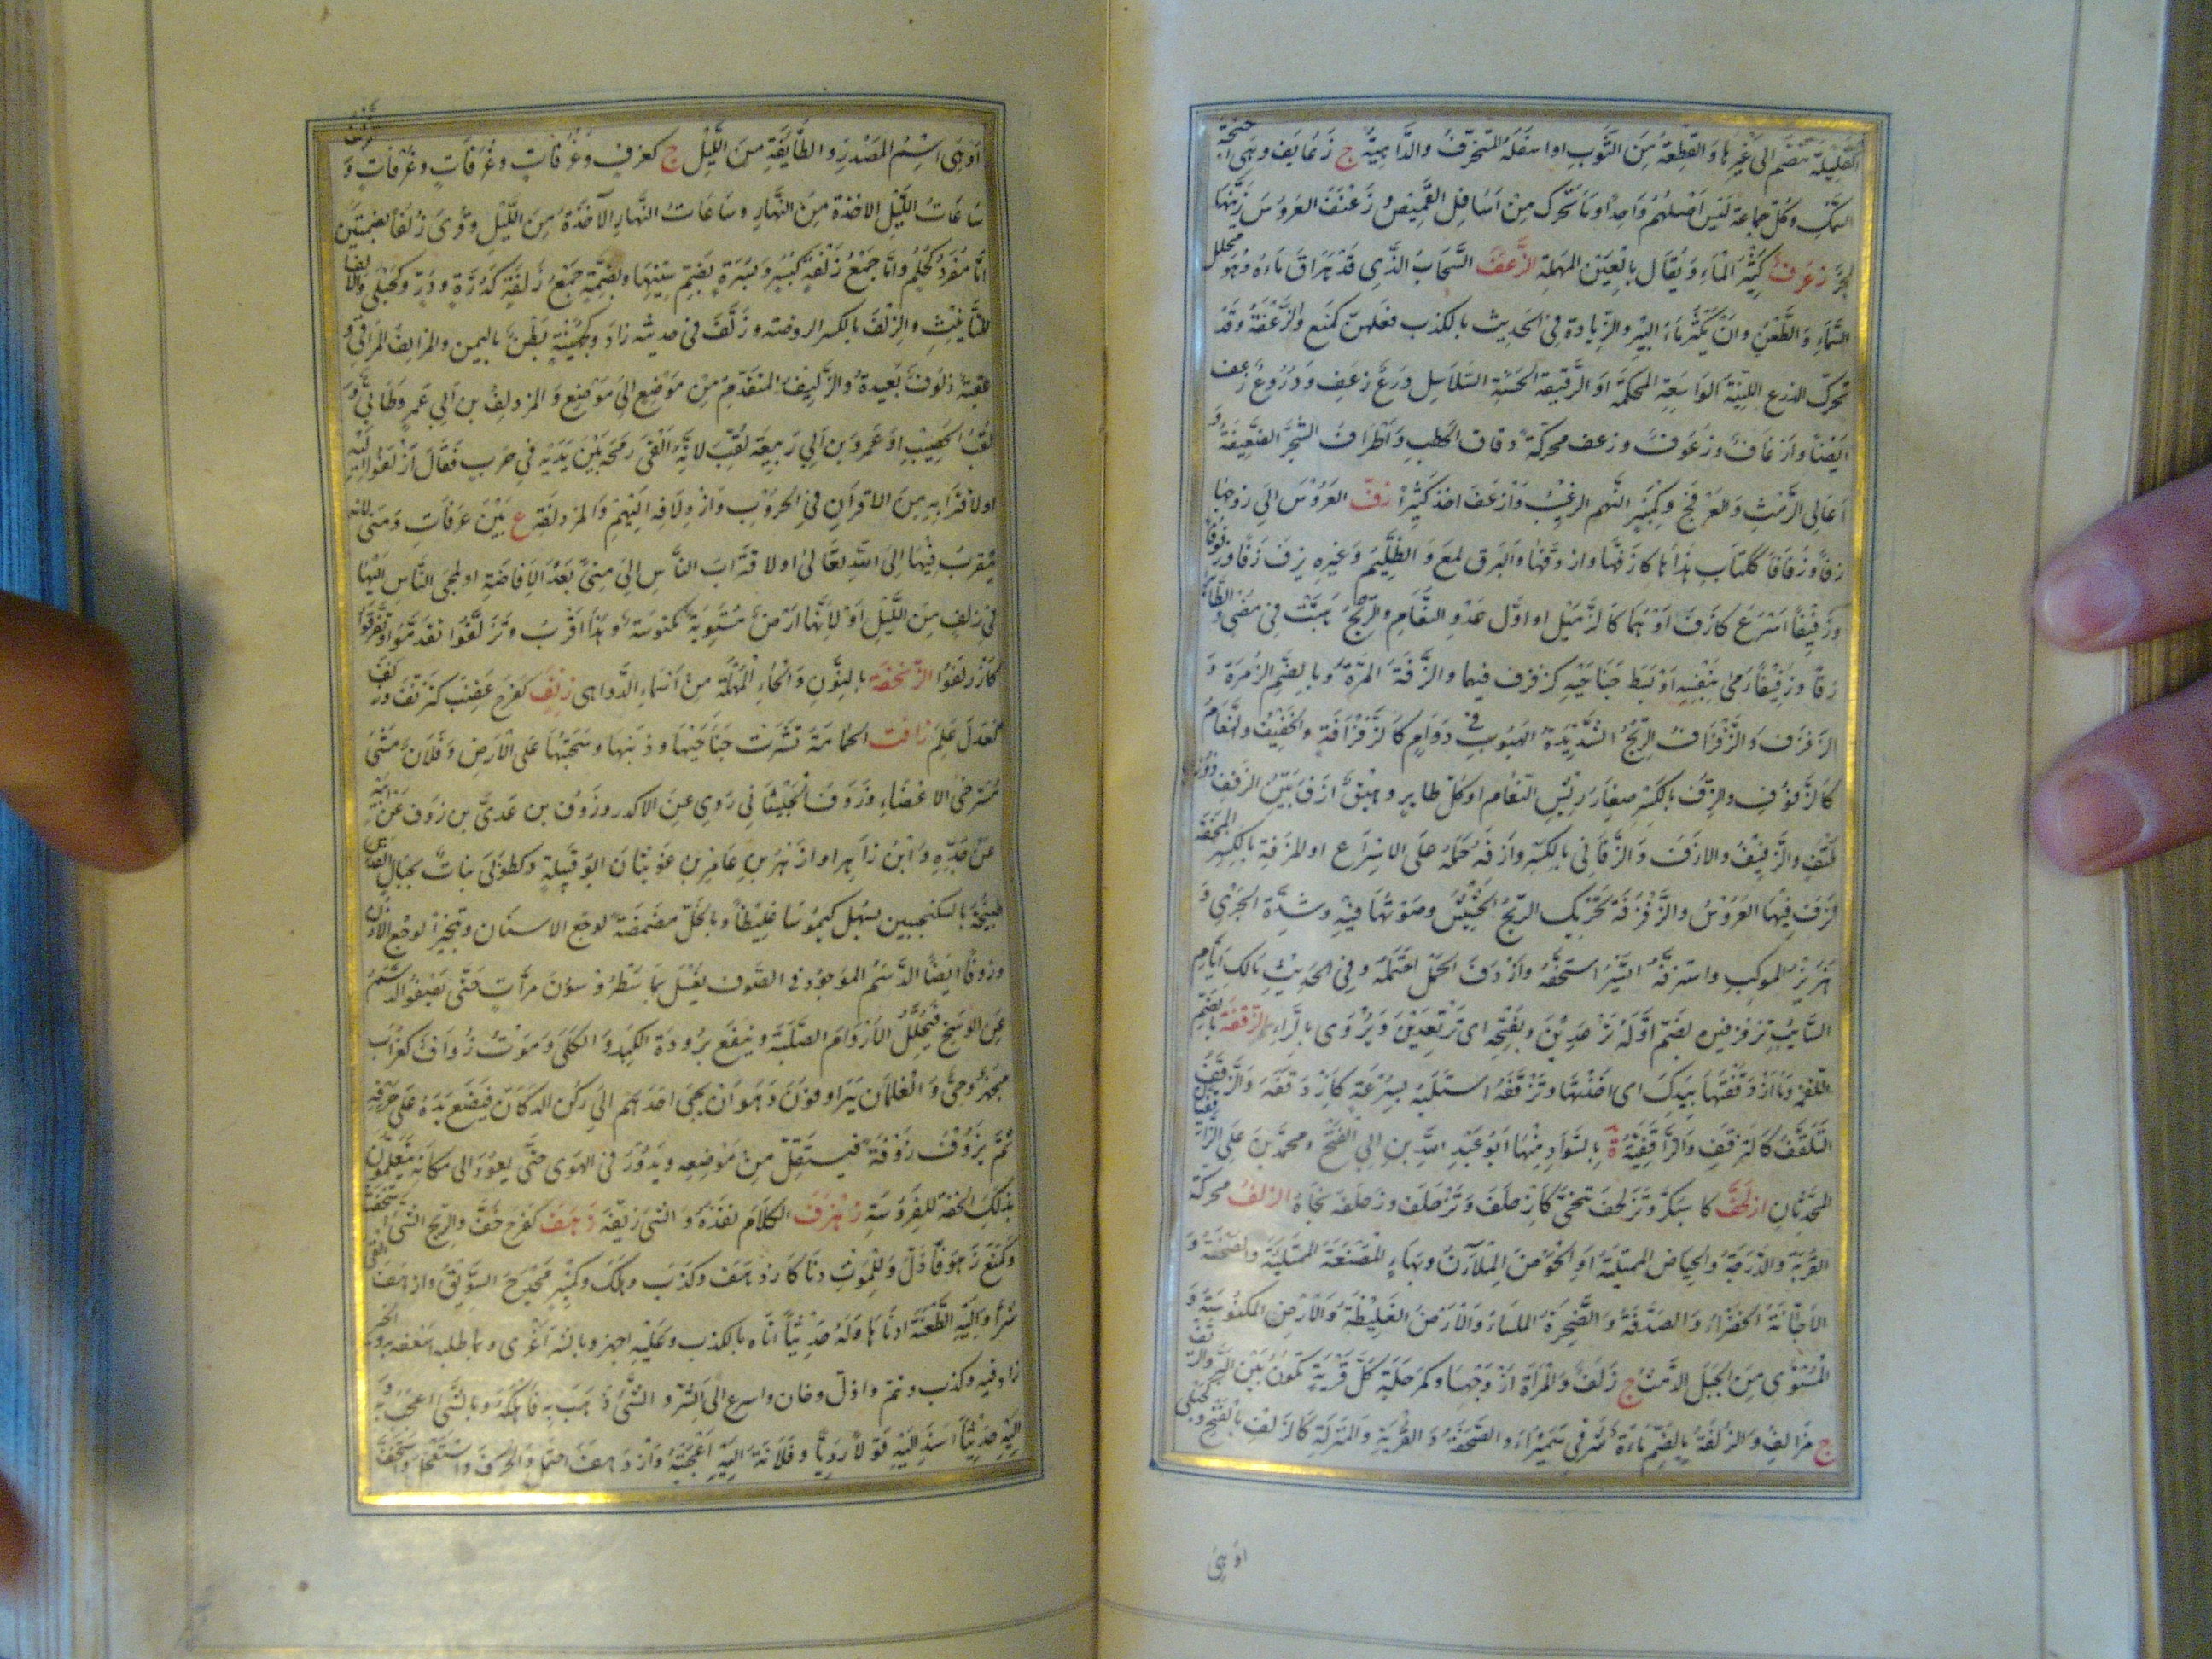 القليلة تنضم الى غيرها والقطعة من الثوب او اسفله المتخرق والداهية ج زعانف وهى اجنحة
السمك وكل جماعة ليس اصلهم واحدا وما تحرك من اسافل القميص و زعنف العروس زينها
زغرف كثير الماء ويقال بالعين المهملة الزغف السحاب الذى قد هراق ماءه وهو مجلل
السماء والطعن وان يكثر ماء البئر والزيادة فى الحديث بالكذب فعلهن كمنع والزغفة وقد
تحرك الدرع اللينة الواسعة المحكمة او الرقيقة الحسنة السلاسل درع زغف ودروع زغف
ايضا وازغاف وزغوف وزغف محركة دقاق الحطب واطراف الشجر الضعيفة و
اعالى الرمث والعرفج وكمنبر النهم الرغيب وازغف اخذ كثيرا زف العروس الى زوجها
زفا وزفافا ككتاب هداها كازفها وازدفها والبرق لمع والظليم وغيره يزف زفا وزفوفا
وزفيفا اسرع كازف او هما كالذميل او اول عدو النعام والريح هبت فى مضى والطائر
زفا وزفيفا رمى بنفسه او بسط جناحيه كزفزف فيهما والزفة المرة وبالضم الزمرة و
الزفزف والزفزاف الريح الشديدة الهبوب فى دوام كالزفزافة والخفيف والنعام
كالزفوف والزف بالكسر صغار ريش النعام او كل طائر وهيق ازف بين الزفف ذو زف
ملتف والزفيف والازف والزفانى بالكسر وازفه حمله على الاسراع او المزفة بالكسر المحفة
تزف فيها العروس والزفزفة تحريك الريح الحشيش وصوتها فيه وشدة الجرى و
هزيز الموكب واستزفه السير استخفه وازدف الحمل احتمله وفى الحديث مالك يا ام
السايب تزفزفين بضم اوله ترعدين وبفتحه اى ترتعدين ويروى بالراء الزقفة بالضم
اللقفة وما ازدقفتها بيدك اى اخذتها وتزقفه استلبه بسرعة كازدقفه والزقف
التلقف كالتزقف والزاقفية ة بالسواد منها ابو عبد الله بن ابى الفتح ومحمد بن على الزاقفيان
المحدثان ازلحف كاسبكر وتزلحف تنحى كازحلف وتزحلف وزحلفه نحاه الزلف محركة
القربة والدرجة والحياض الممتلية او الحوض الملآن وبهاء المصنعة الممتلية والصحفة و
الاجانة الخضراء والصدفة والصخرة الملساء والارض الغليظة والارض المكنوسة و
المستوى من الجبل الدمث ج زلف والمرأة از وجهها وكمرحلة كل قرية تكون بين البر والريف
ج مزالف والزلفة بالضم ماءة شرقى سميراء والصحفة والقربة والمنزلة كالزلف بالفتح وكحبلى
او هى
او هى اسم المصدر والطائفة من الليل ج كغرف وغرفات وغرفات وغرفات و
ساعات الليل الاخذة من النهار وساعات النهار الآخذة من الليل وقرئ زلفا بضمتين
اما مفرد كحلم واما جمع زلفة كبسر وبسرة بضم سينها وبضمة جمع زلفة كدرة ودر وكحبلى والالف
للتأنيث والزلف بالكسر الروضة وزلف فى حديثه زاد وكجهينة بطن باليمن والمزالف المراقى و
عقبة زلوف بعيدة والزليف المتقدم من موضع الى موضع والمزدلف بن ابى عمرو طائى و
لقب الخصيب او عمرو بن ابى ربيعة لقب لانه القى رمحه بين يديه فى حرب فقال ازدلفوا اليه
او لاقترابه من الاقران فى الحروب وازدلافه اليهم والمزدلفة ع بين عرفات ومنى لانه
يتقرب فيها الى الله تعالى او لاقتراب الناس الى منى بعد الافاضة او لمجئ الناس اليها
فى زلف من الليل او لانها ارض مستوية مكنوسة وهذا اقرب وتزلفوا تقدموا وتفرقوا
كازدلفوا الزنحفة بالنون والحاء المهملة من اسماء الدواهى زنف كفرح غضب كتزنف
زافت الحمامة نشرت جناحيها وذنبها وسحبتها على الارض وفلان مشى
مسترخى الاعضاء وزوف بن عدى بن زوف عن ابيه
عن جده وابن زاهر او ازهر بن عامر بن عوبثان ابو قبيلة وكطوبى نبات بجبال القدس
طبيخه بالسكنجبين يسهل كيموسا غليظا وبالخل مضمضة لوجع الاسنان وتبخيرا لوجع الاذن
وزوفا ايضا الدسم الموجود فى الصوف يغسل بماء سطروسون مرات حتى يصفو الدسم
عن الوسخ فيحلل الاورام الصلبة وينفع برودة الكبد والكلى وموت زواف كغراب
مجهز وحى والغلمان يتزاوفون وهو ان يجئ احدهم الى ركن الدكان فيضع يده على حرفه
ثم يزوف زوفة فيستقل من موضعه ويدور فى الهوى حتى يعود الى مكانه يتعلمون
بذلك الخفة للفروسة زهرف الكلام نفذه والشئ زيفه زهف كفرح خف والريح الشئ استخفته
وكمنع زهوفا ذل وللموت دنا كازدهف وكذب وهلك وكمنبر مجدح السويق وازهف القى
شرا واليه الطعنة ادناها وله حديثا اتاه بالكذب وعليه اجهز وبالشر اغرى وبما طلبه اسعفه
زاد فيه وكذب ونم واذل وخان واسرع الى الشر والشئ ذهب به فاهلكه وبالشئ اعجب به و
اليه حديثا اسند اليه قولا رديا وفلانة اليه اعجبته وازدهف احتمل وانحرف واستعجل واستخف